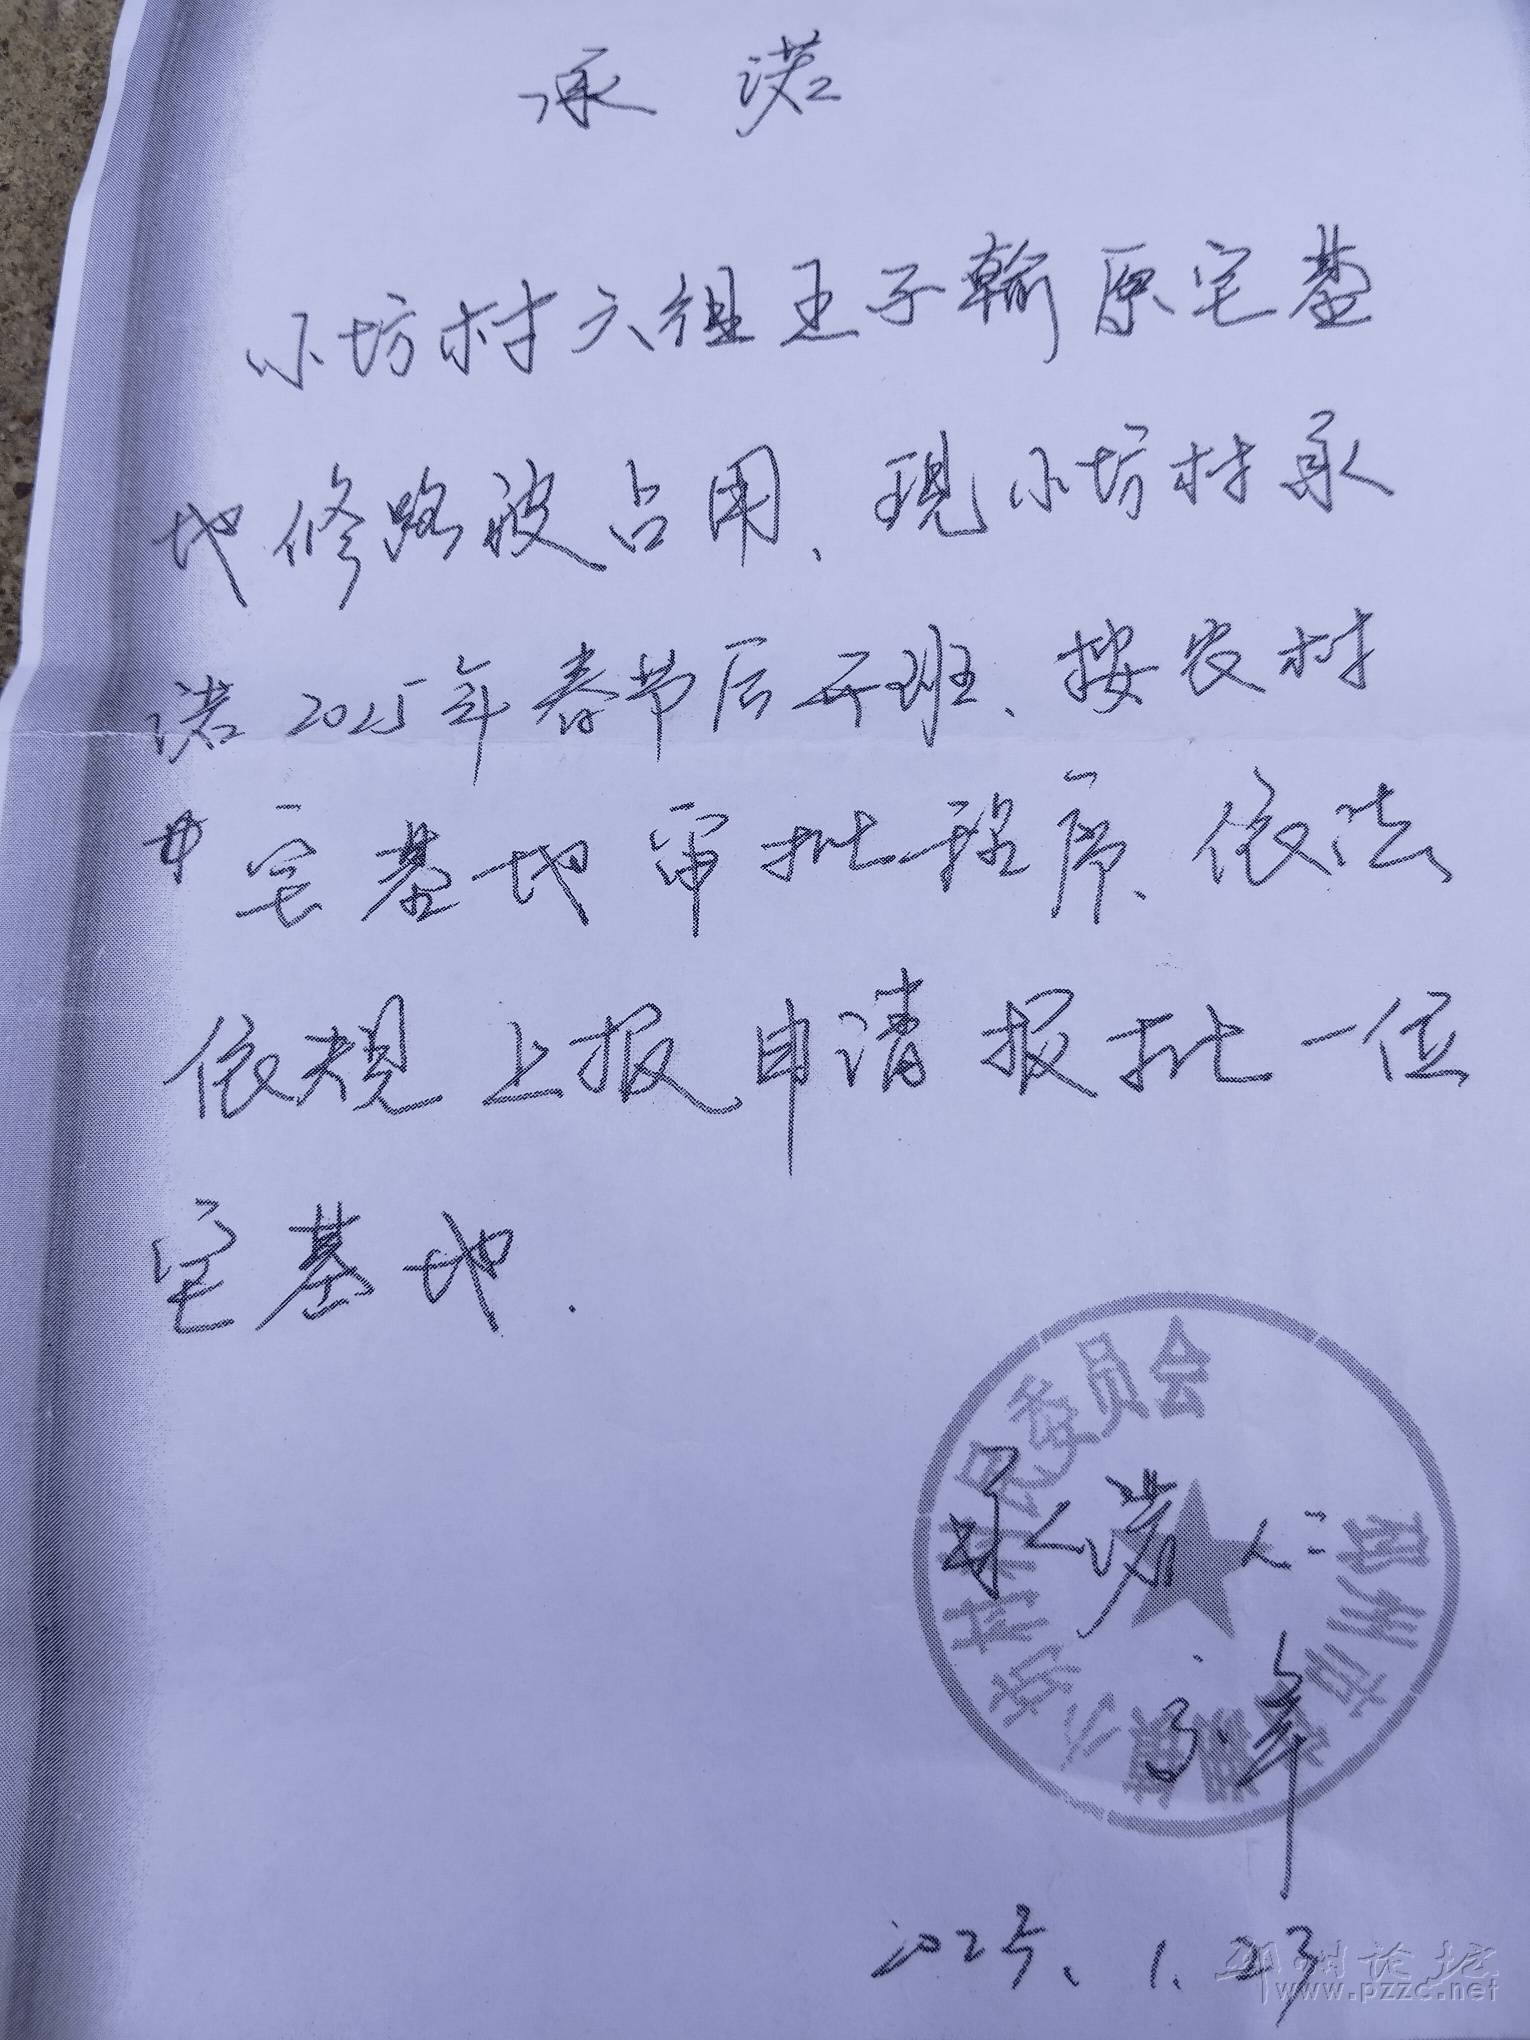 承诺
小坊村六组王子翰原宅基
地修路被占用、现小坊村承
诺2025年春节后开班、按农村
宅基地审批程序、依法
依规上报申请报批一位
宅基地.
承诺人:
2025.1.23
邳州市
小坊村村民委员会
邳州论坛
www.pzzc.net